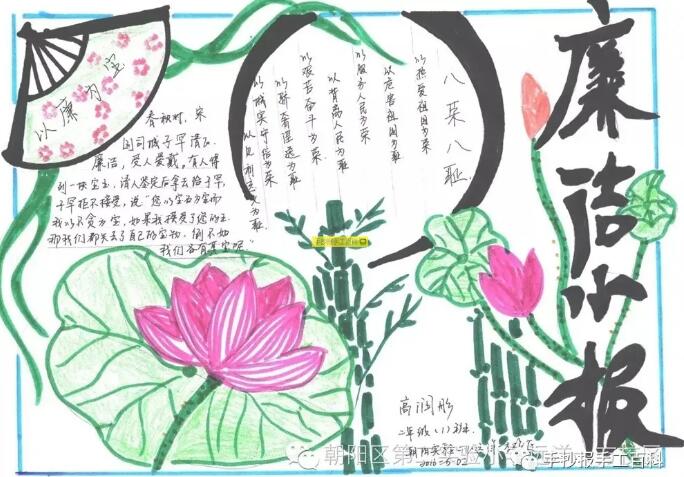 廉洁小报
以廉为宝
春秋时，宋
国司城子罕清正
廉洁，受人爱戴，有人得
到一块宝玉，请人鉴定后拿去给子罕，
子罕拒不接受，说“您以宝玉为宝而
我以不贪为宝，如果我接受了您的玉
那我们都失去了自己的宝物，倒不如
我们各有其宝呢”
八荣八耻
以热爱祖国为荣
以危害祖国为耻
以服务人民为荣
以背离人民为耻
以艰苦奋斗为荣
以骄奢淫逸为耻
以诚实守信为荣
以见利忘义为耻
手抄报手工百科
二年级(1)班
朝阳区第
手抄报手工百科